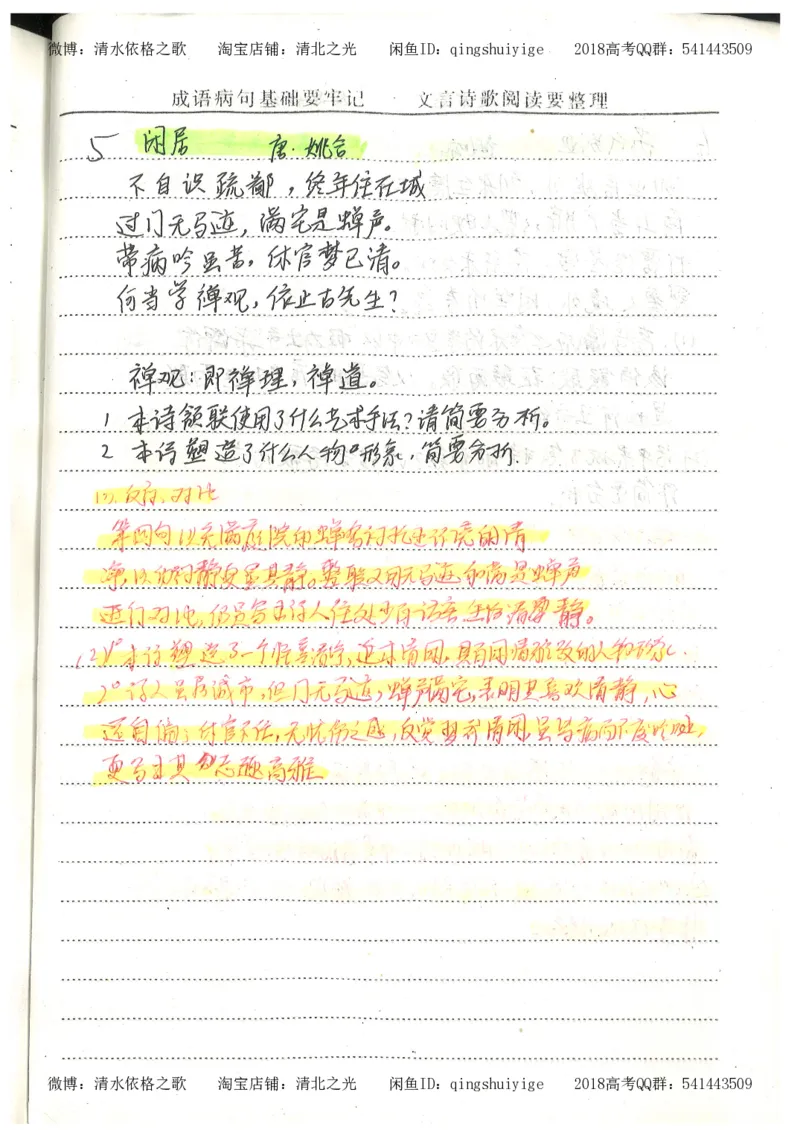 微博：清水依格之歌 淘宝店铺：清北之光 闲鱼ID：qingshuiyige 2018高考QQ群：541443509
成语病句基础要牢记 文言诗歌阅读要整理
5 闲居 唐·姚合
不自识疏鄙，终年住在城
过门无马迹，满宅是蝉声。
带病吟虽苦，休官梦已清。
何当学禅观，依止古先生？
禅观：即禅理，禅道。
1 本诗颔联使用了什么艺术手法？请简要分析。
2 本诗塑造了什么人物形象，简要分析.
(1). 反衬，对比
第四句以充满庭院的蝉鸣衬托出环境的清
净，以动衬静更显其静。整联又用无马迹和满是蝉声
进行对比，仍是写出诗人住处少有访客 生活清 静。
(2) 1° 本诗塑造了一个性喜清净，追求清闲，具有闲情雅致的人物形象.
2° 诗人虽居城市，但门无马迹，蝉声满宅，表明其喜欢清静，心
远自偏；休官不仕，无忧伤之感，反觉 清闲，虽带病而不废吟咏，
更写出其 志趣高雅
微博：清水依格之歌 淘宝店铺：清北之光 闲鱼ID：qingshuiyige 2018高考QQ群：541443509